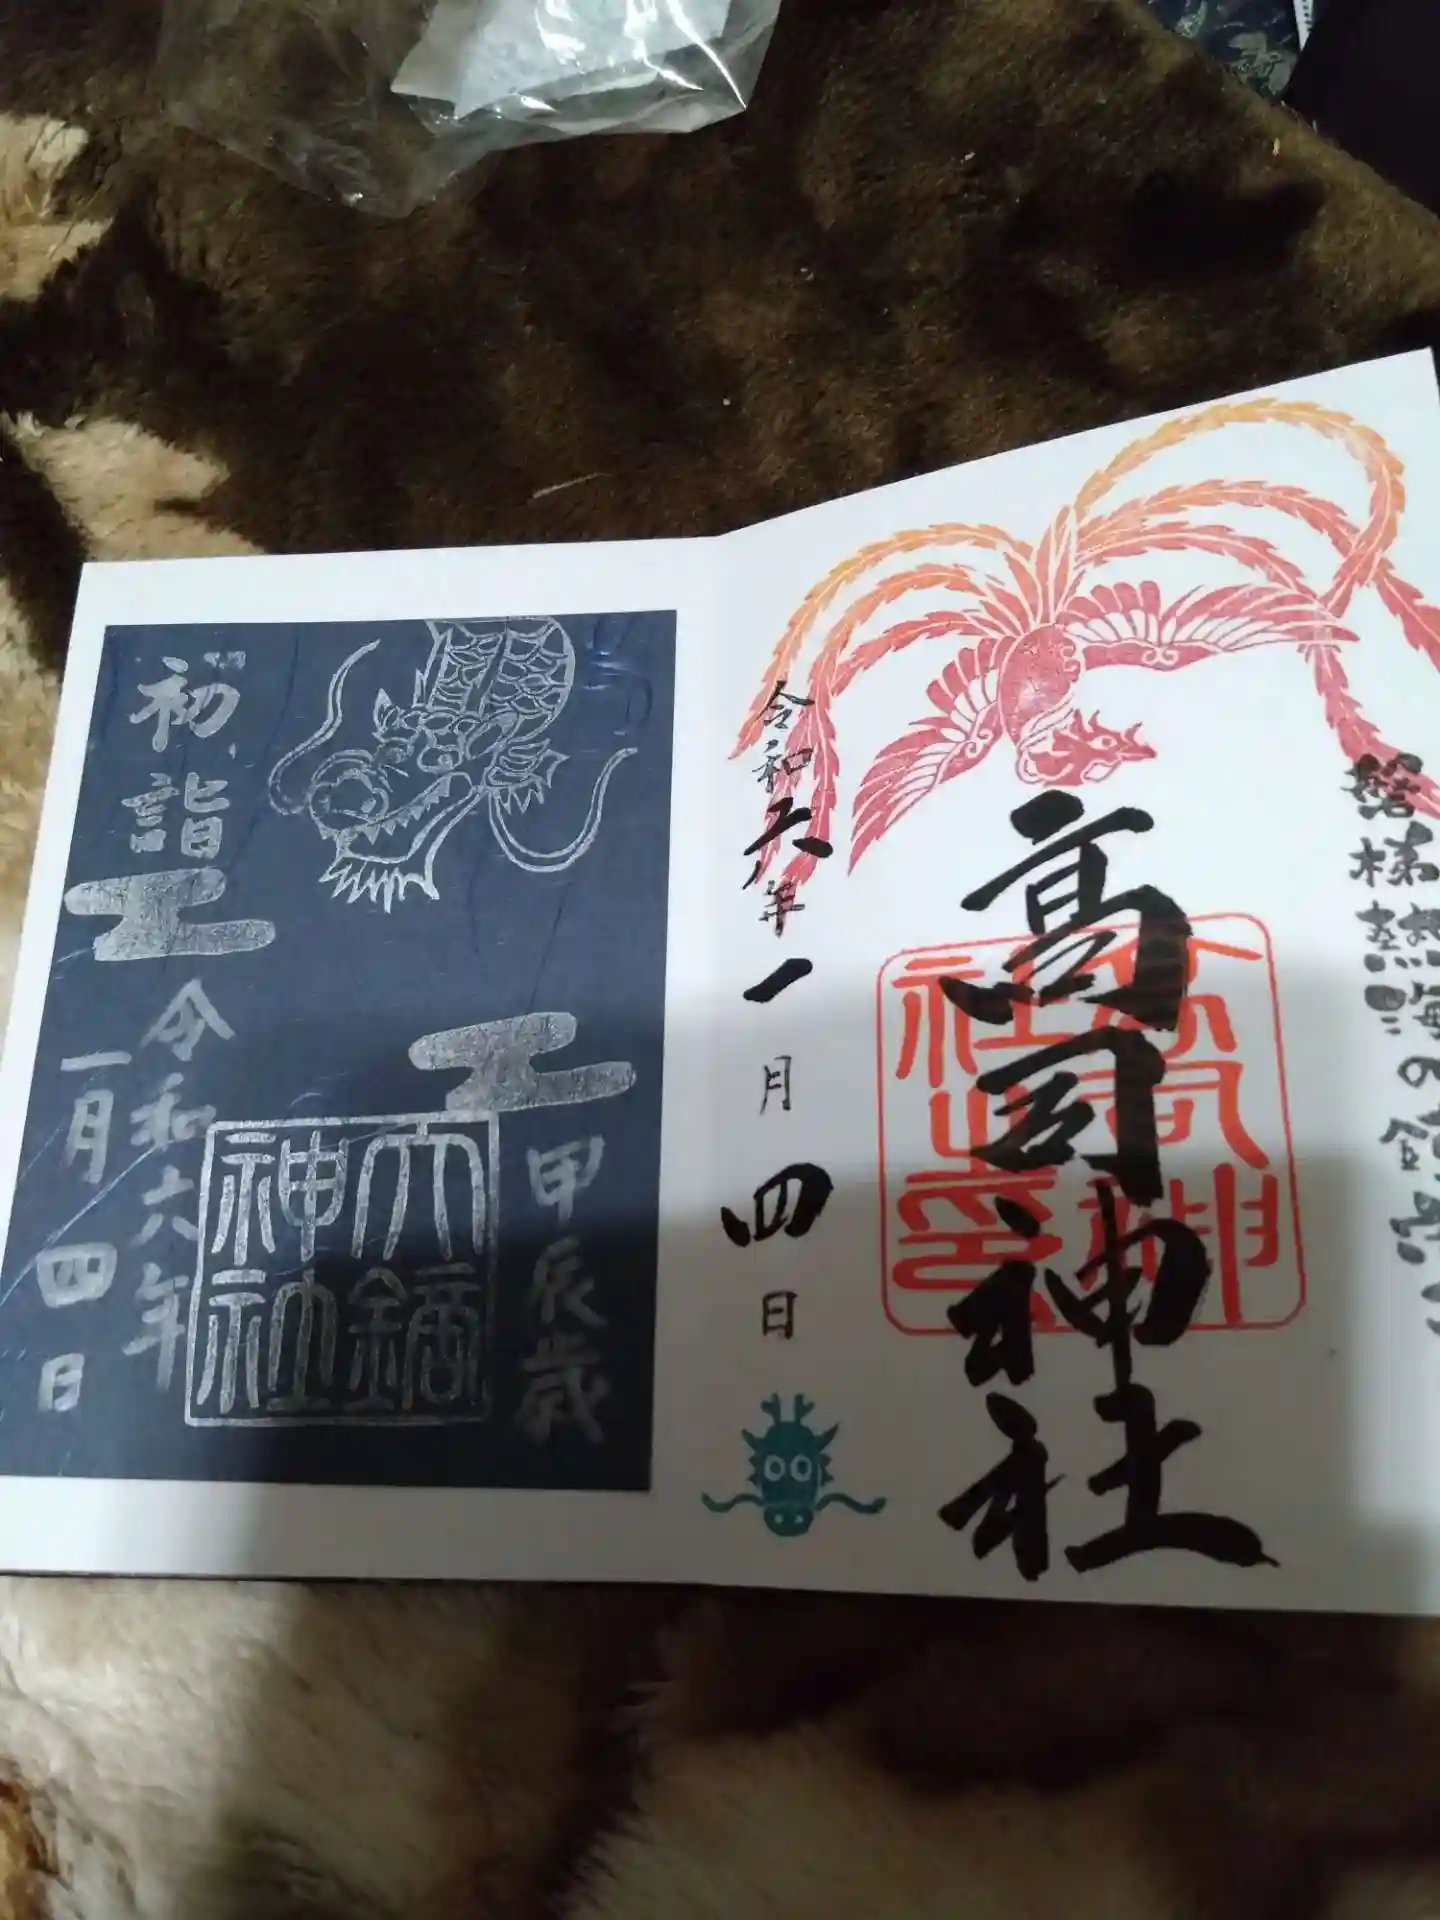 磐梯熱海の
高司神社
令和六年一月四日
甲辰歳
大鏑
神社
初詣
令和六年
一月四日